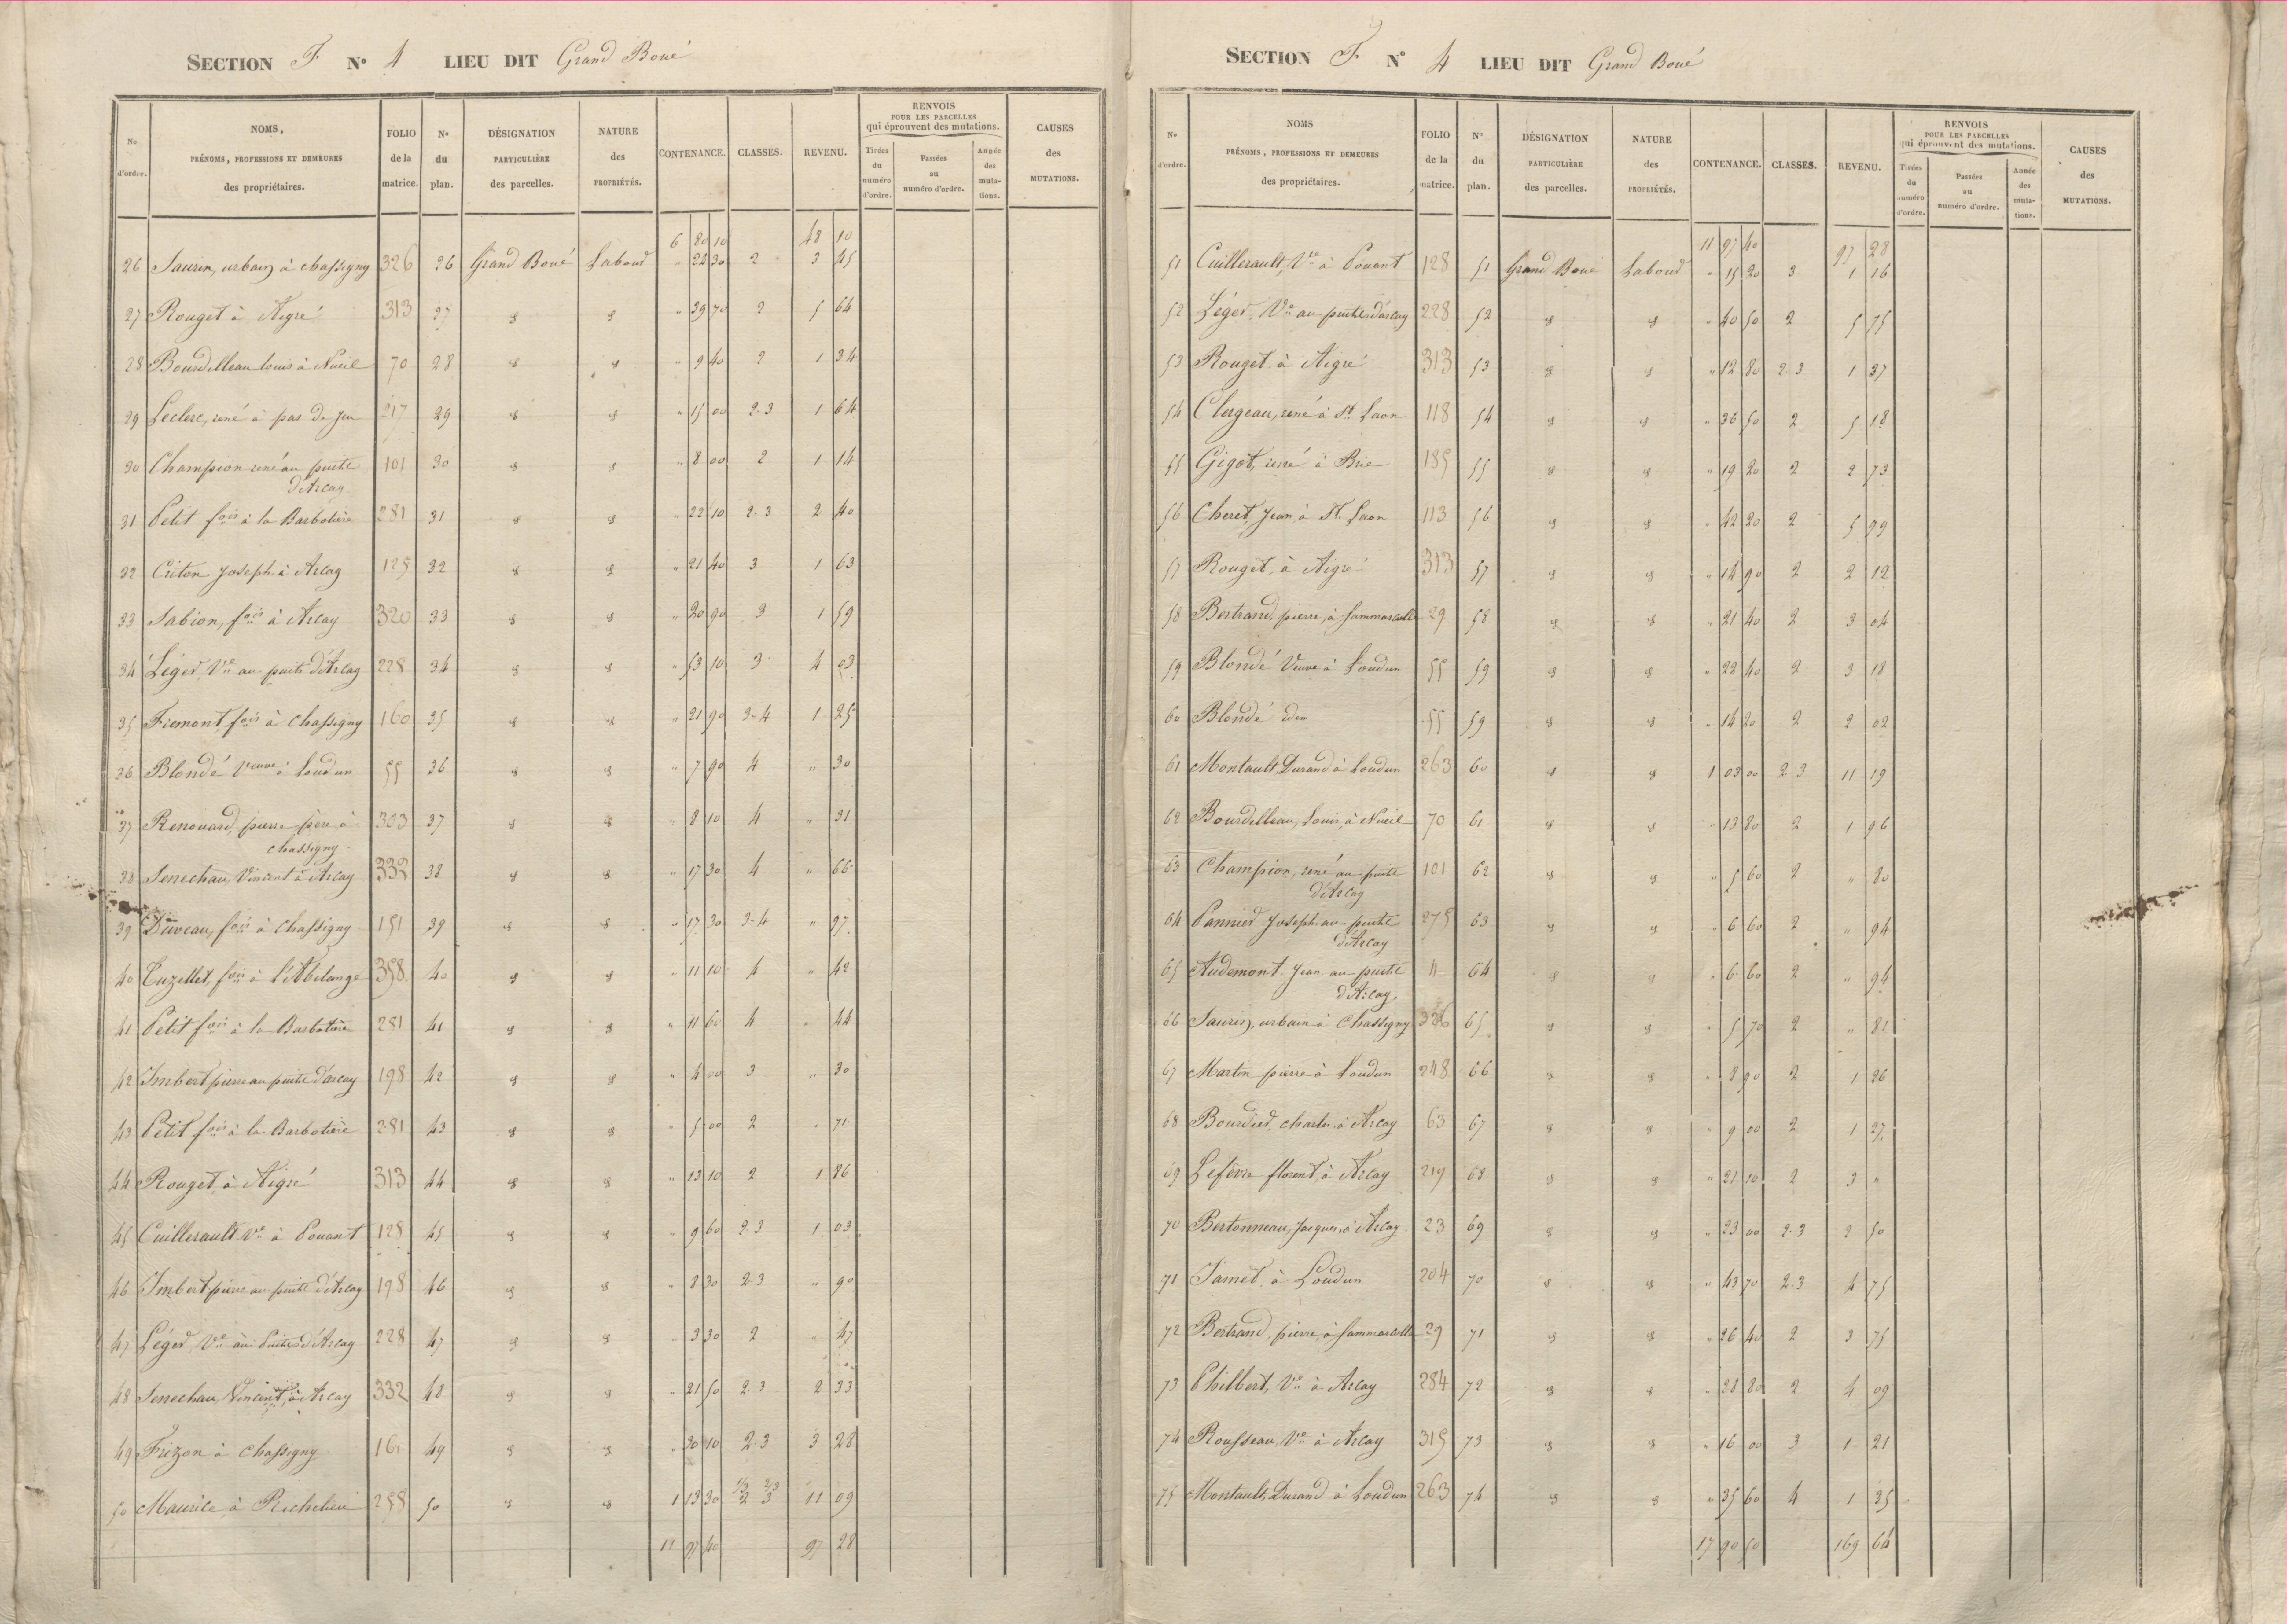 SECTION F N° 4 LIEU DIT Grand Boué
No d'ordre. NOMS, PRÉNOMS, PROFESSIONS ET DEMEURES des propriétaires. FOLIO de la matrice. No du plan. DÉSIGNATION PARTICULIÈRE des parcelles. NATURE des PROPRIÉTÉS. CONTENANCE. CLASSES. REVENU. RENVOIS POUR LES PARCELLES qui éprouvent des mutations. Tirées du numéro d'ordre. Passées au numéro d'ordre. Année des mutations. CAUSES des MUTATIONS.
6 80 10 48 10
26 Saurin, urbain à chassigny 326 26 Grand Boué Labour " 24 30 2 3 45
27 Rouget à Aigré 313 27 " " " 39 70 2 5 64
28 Bourdilleau louis à Nueil 70 28 " " " 9 40 2 1 34
29 Leclerc, rené à pas de Jeu 217 29 " " " 15 00 2-3 1 64
30 Champion rené au puits d'Arcay 101 30 " " " 8 00 2 1 14
31 Petit fois à la Barbotière 281 31 " " " 22 10 2-3 2 40
32 Criton Joseph à Arcay 125 32 " " " 21 40 3 1 63
33 Sabion, fois à Arcay 320 33 " " " 20 90 3 1 59
34 Léger Ve au puits d'Arcay 228 34 " " " 53 10 3 4 03
35 Fremont fois à chassigny 160 35 " " " 21 90 3-4 1 25
36 Blondé veuve à Loudun 55 36 " " " 7 90 4 " 30
37 Renouard, pierre père à chassigny 303 37 " " " 8 10 4 " 31
38 Senechau, Vincent à Arcay 332 38 " " " 17 30 4 " 66
39 Duveau, fois à Chassigny 151 39 " " " 17 30 3-4 " 97
40 Tuzellet, fois à l'Abelange 358 40 " " " 11 10 4 " 42
41 Petit fois à la Barbotière 281 41 " " " 11 60 4 " 44
42 Imbert pierre au puits d'arcay 198 42 " " " 4 00 3 " 30
43 Petit fois à la Barbotière 281 43 " " " 5 00 2 " 71
44 Rouget, à Aigré 313 44 " " " 13 10 2 1 86
45 Cuillerault Ve à Pouant 128 45 " " " 9 60 2-3 1 03
46 Imbert pierre au puits d'Arcay 198 46 " " " 8 30 2-3 " 90
47 Léger Ve au Puits d'Arcay 228 47 " " " 3 30 2 " 47
48 Senechau, Vincent, à Arcay 332 48 " " " 21 50 2-3 2 33
49 Frizon à chassigny 161 49 " " " 30 10 2-3 3 28
50 Maurice à Richelieu 258 50 " " 1 13 30 1/3 2 2/3 3 11 09
11 97 40 97 28
SECTION F N° 4 LIEU DIT Grand Boué
No d'ordre. NOMS PRÉNOMS, PROFESSIONS ET DEMEURES des propriétaires. FOLIO de la matrice. N° du plan. DÉSIGNATION PARTICULIÈRE des parcelles. NATURE des PROPRIÉTÉS. CONTENANCE. CLASSES. REVENU. RENVOIS POUR LES PARCELLES qui éprouvent des mutations. Tirées du numéro d'ordre. Passées au numéro d'ordre. Année des mutations. CAUSES des MUTATIONS.
11 97 40 97 28
51 Cuillerault, Ve à Pouant 128 51 Grand Boué Labour " 15 20 3 1 16
52 Léger, Ve au puits d'arcay 228 52 " " " 40 50 2 5 75
53 Rouget à Aigré 313 53 " " " 12 80 2-3 1 37
54 Clergeau, rené à St Laon 118 54 " " " 36 50 2 5 18
55 Gigot, rené à Brie 185 55 " " " 19 20 2 2 73
56 Cheret, Jean à St Laon 113 56 " " " 42 20 2 5 99
57 Rouget, à Aigré 313 57 " " " 14 90 2 2 12
58 Bertrand, pierre, à Sammarcolle 29 58 " " " 21 40 2 3 04
59 Blondé Veuve à Loudun 55 59 " " " 22 40 2 3 18
60 Blondé idem 55 59 " " " 14 20 2 2 02
61 Montault, Durand à Loudun 263 60 " " 1 03 00 2-3 11 19
62 Bourdilleau, Louis, à Nueil 70 61 " " " 13 80 2 1 96
63 Champion, rené au puits d'Arcay 101 62 " " " 5 60 2 " 80
64 Pannier Joseph au puits d'Arcay 275 63 " " " 6 60 2 " 94
65 Audemont Jean au puits d'Arcay 4 64 " " " 6 60 2 " 94
66 Saurin, urbain à Chassigny 326 65 " " " 5 70 2 " 82
67 Martin pierre à Loudun 248 66 " " " 8 90 2 1 26
68 Bourdier, charles à Arcay 63 67 " " " 9 00 2 1 27
69 Lefèvre florent, à Arcay 219 68 " " " 21 10 2 3 "
70 Bertonneau, Jacques, à Arcay 23 69 " " " 23 00 2-3 2 50
71 Jamet, à Loudun 204 70 " " " 43 70 2-3 4 75
72 Bertrand, pierre, à Sammarcolle 29 71 " " " 26 40 2 3 75
73 Philbert, Ve à Arcay 284 72 " " " 28 80 2 4 09
74 Rousseau, Ve à Arcay 315 73 " " " 16 00 3 1 21
75 Montault, Durand à Loudun 263 74 " " " 35 60 4 1 35
17 90 50 169 64